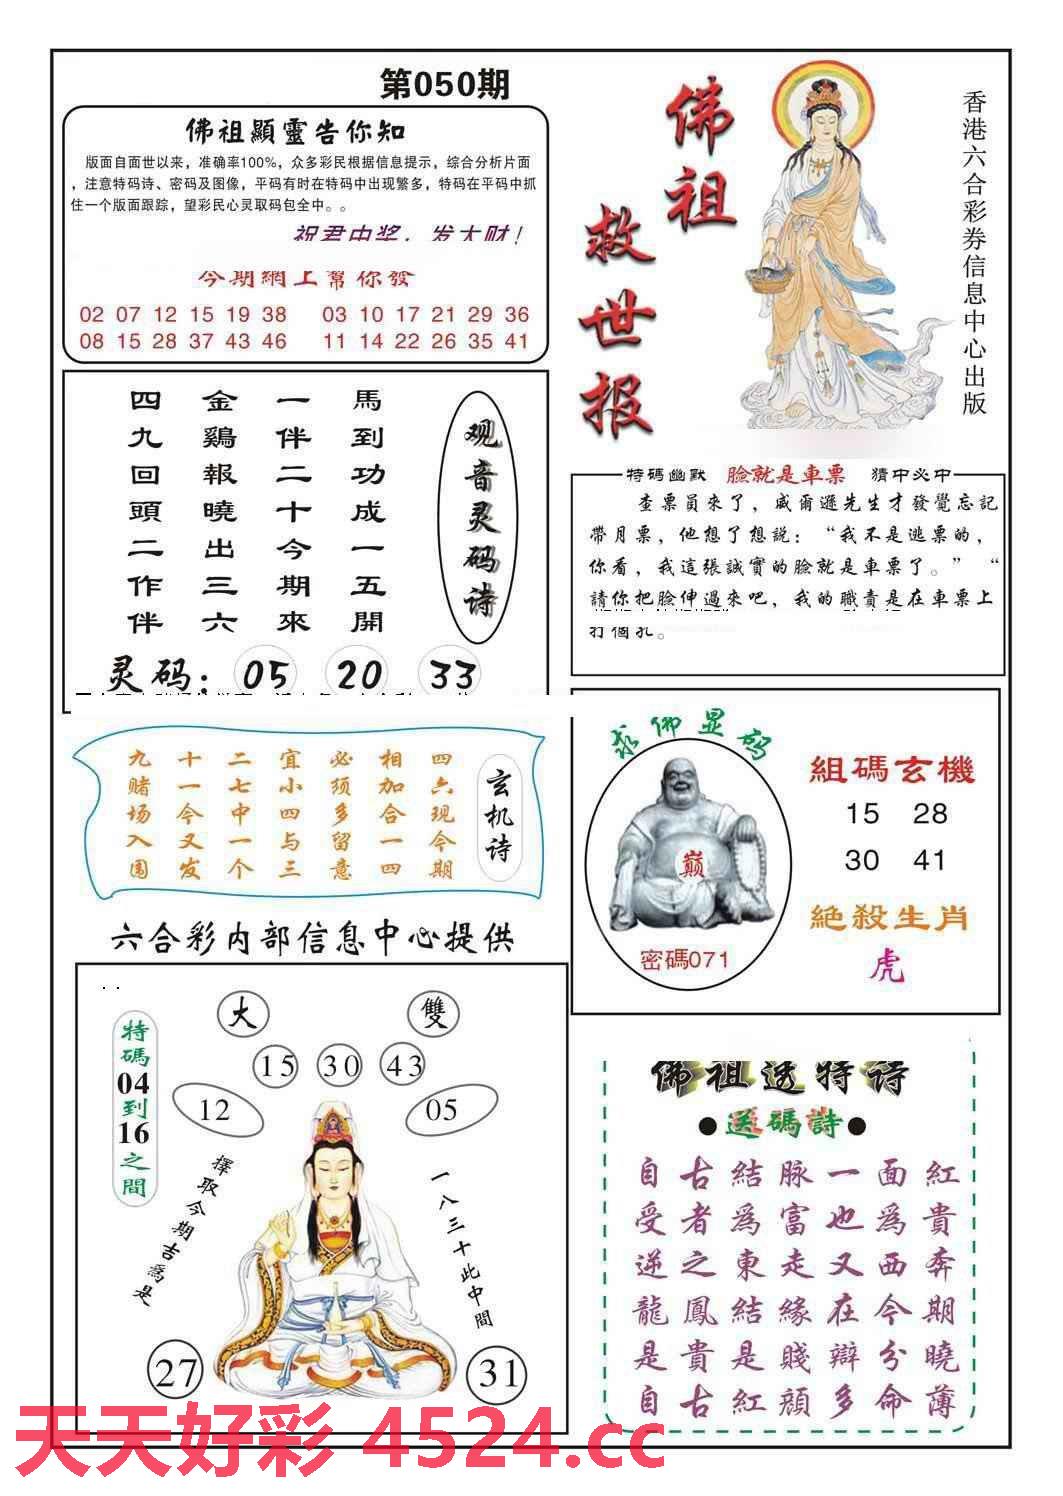 第050期
佛祖顯靈告你知
版面自面世以来，准确率100%，众多彩民根据信息提示，综合分析片面
，注意特码诗、密码及图像，平码有时在特码中出现繁多，特码在平码中抓
住一个版面跟踪，望彩民心灵取码包全中。。
祝君中奖，发大财！
今期網上幫你發
02 07 12 15 19 38 03 10 17 21 29 36
08 15 28 37 43 46 11 14 22 26 35 41
佛祖
救世报
香港六合彩券信息中心出版
观音灵码诗
馬到功成一五開
一伴二十今期來
金鷄報曉出三六
四九回頭二作伴
灵码：05 20 33
特碼幽默 臉就是車票 猜中必中
查票員來了，威爾遜先生才發覺忘記
帶月票，他想了想説：“我不是逃票的，
你看，我這張誠實的臉就是車票了。”“
請你把臉伸過來吧，我的職責是在車票上
打個孔。
玄机诗
四六现今期
相加合一四
必须多留意
宜小四与三
二七中一个
十一今又发
九赌场入围
求佛显码
巅
密碼071
組碼玄機
15 28
30 41
絕殺生肖
虎
六合彩内部信息中心提供
特碼04到16之間
大 雙
15 30 43
12 05
擇取今期吉爲是
一八三十此中間
27 31
佛祖透特诗
●送碼詩●
自古結脉一面紅
受者為富也為貴
逆之東走又西奔
龍鳳結緣在今期
是貴是賤辯分曉
自古紅顔多命薄
天天好彩 4524.cc